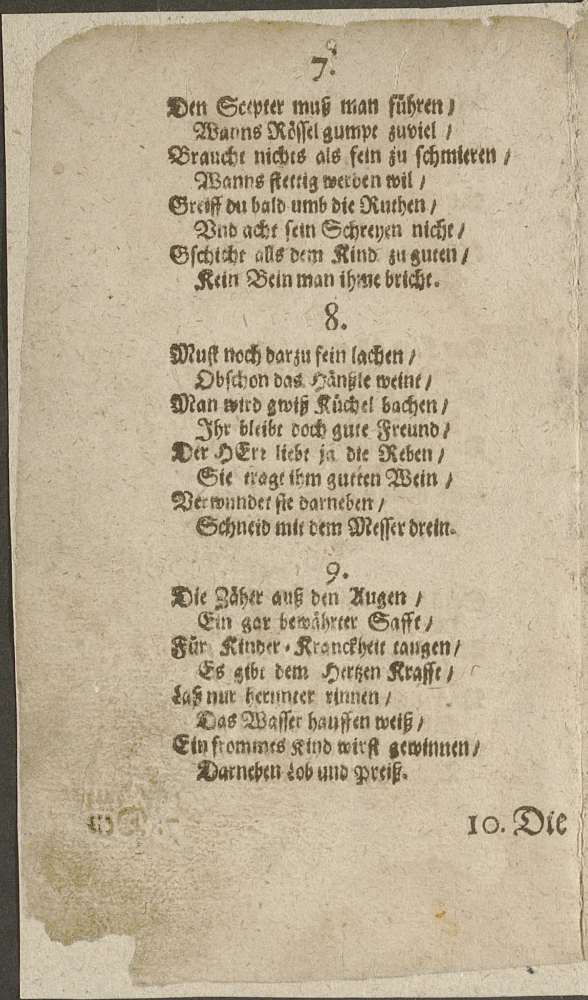 7.
Den Scepter muß man führen /
Wanns Rössel gumpt zuviel /
Braucht nichts als fein zu schmieren /
Wanns stettig werden wil /
Greiff du bald umb die Ruthen /
Vnd acht sein Schreyen nicht /
Gschicht alls dem Kind zu guten /
Kein Bein man ihme bricht.
8.
Must noch darzu fein lachen /
Obschon das Hänßle weint /
Man wird gwiß Küchel bachen /
Ihr bleibt doch gute Freund /
Der HErr liebt ja die Reben /
Sie tragt ihm gutten Wein /
Verwundet sie darneben /
Schneid mit dem Messer drein.
9.
Die Zäher auß den Augen /
Ein gar bewährter Safft /
Für Kinder-Kranckheit taugen /
Es gibt dem Hertzen Krafft /
Laß nur herunter rinnen /
Das Wasser hauffen weiß /
Ein frommes Kind wirst gewinnen /
Darneben Lob und Preiß.
10. Die